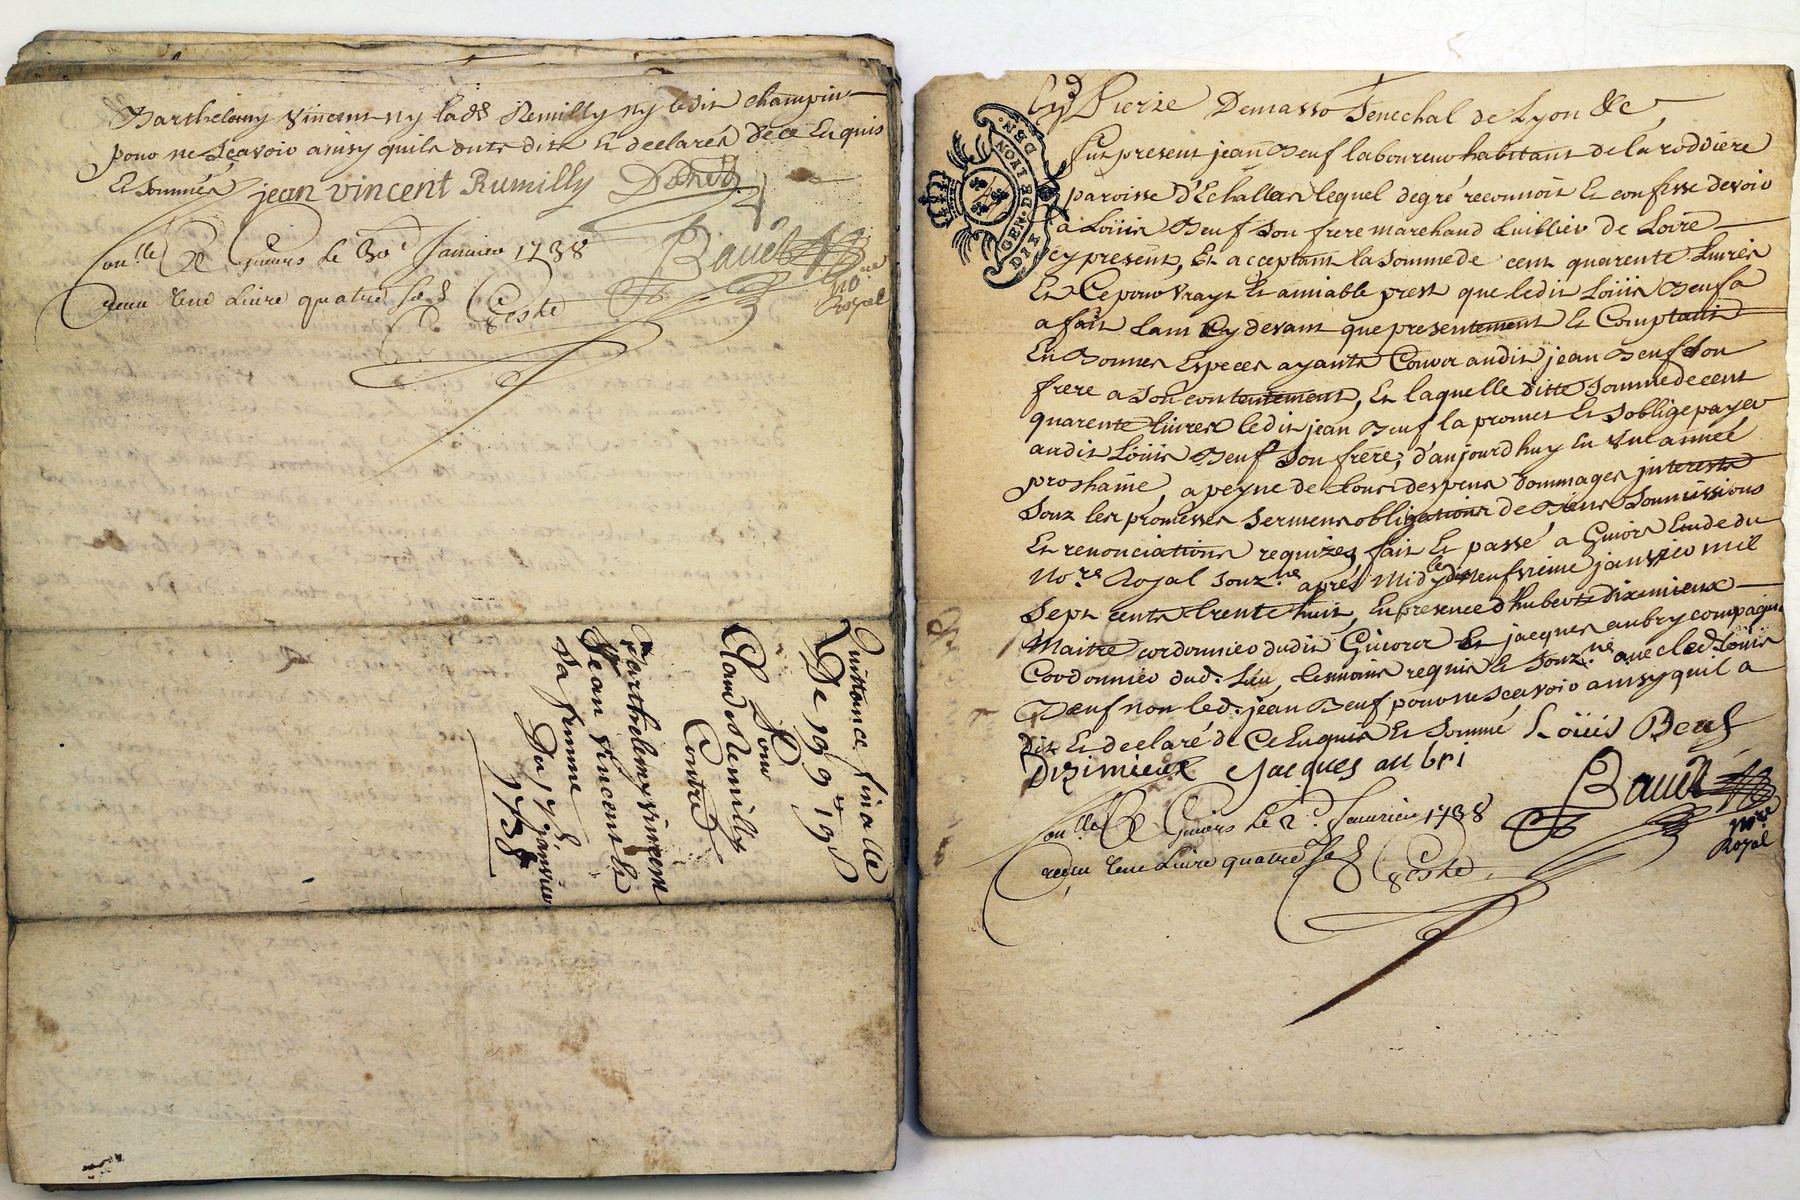 Barthelemy Vincent ny lad. Remilly ny ledit champin
pour ne Sçavoir ainsy quils ont dit Et declarés de ce Enquis
Et Sommés jean vincent Rumilly
Conlle A Givors le 30e Janvier 1738
Receu Une Livre quatre sols
Bauët
no.re
Royal
Quittance finalle
De 199lt 19s
Pour
Claude Remilly
Contre
Barthelemy Vincent
Jean Vincent Et
sa femme
Du 17e janvier
1738
Pierre Demasso Senechal de Lyon &c
Fut present jean Beuf laboureur habitant de la roddiere
paroisse d'Echallas lequel de gré reconnoit Et confesse devoir
à Loüis Beuf Son frere marchand tuillier de Loire
cy present, Et acceptant la Somme de cent quarente Livres
Et Ce pour vray Et amiable prest que ledit Loüis Beuf a
a fait tant Cy devant que presentement Et Comptant
En Bonnes Especes ayants Cours audit jean Beuf Son
frere a Son contentement, Et laquelle ditte Somme de cent
quarente Livres ledit jean Beuf la promet Et S'oblige payer
audit Loüis Beuf Son frere, d'aujourd'huy En Une année
prochaine, a peyne de tous despens dommages interests
Souz les promesses Sermens obligations de Biens Soumissions
Et renonciations requizes, fait Et passé a Givors Etude du
No.re Royal Souz.né après Midy le dixneufvieme janvier mil
Sept cents trente huit, En presence d'hubert diximieux
Maitre cordonnier dudit Givors Et jacques aubry compagnon
Cordonnier dud. Lieu, temoins requis Et Souz.nés avec led. Loüis
Beuf non led. jean Beuf pour ne Scavoir ainsy quil a
dit Et declaré de Ce Enquis Et Sommé Loüis Beuf
Dizimieux Jacques au bri
Bauët
no.re
Royal
Conlle A Givors le 2e Janvrier 1738
receu Une Livre quatre sols
GEN. DE LYON
DIX DEN.